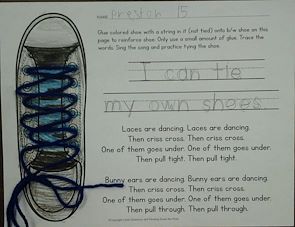 NAME Preston 15
Glue colored shoe with a string in it (not tied) onto b/w shoe on this
page to reinforce shoe. Only use a small amount of glue. Trace the
words. Sing the song and practice tying the shoe.
I can tie
my own shoes.
Laces are dancing. Laces are dancing.
Then criss cross. Then criss cross.
One of them goes under. One of them goes under.
Then pull tight. Then pull tight.
Bunny ears are dancing. Bunny ears are dancing.
Then criss cross. Then criss cross.
One of them goes under. One of them goes under.
Then pull through. Then pull through.